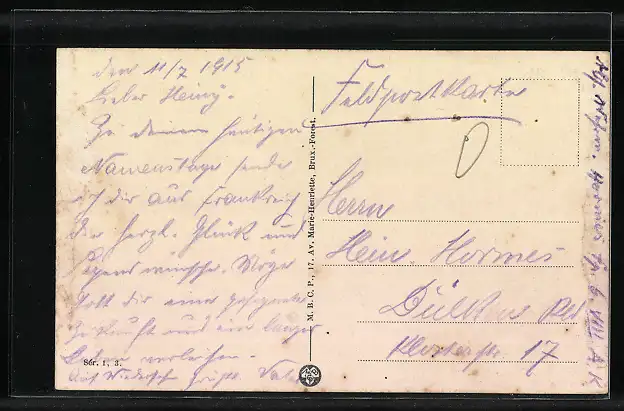 den 11/7 1915
Lieber Heinz.
Zu deinem heutigen
Namenstage sende
ich dir aus Frankreich
die herzl. Glück und
Segenswünsche. Möge
Gott dir eine gesegnete
Zukunft und ein langes
Leben verleihen.
Auf Wiedersehn grüßt Vater
Sér. 1, 3.
M. B. C. P., 17, Av. Marie-Henriette, Brux.-Forest.
Feldpostkarte
Herrn
Hein. Hormes
Dülken Rld
Klosterstr 17
Hormes
VIII A. K